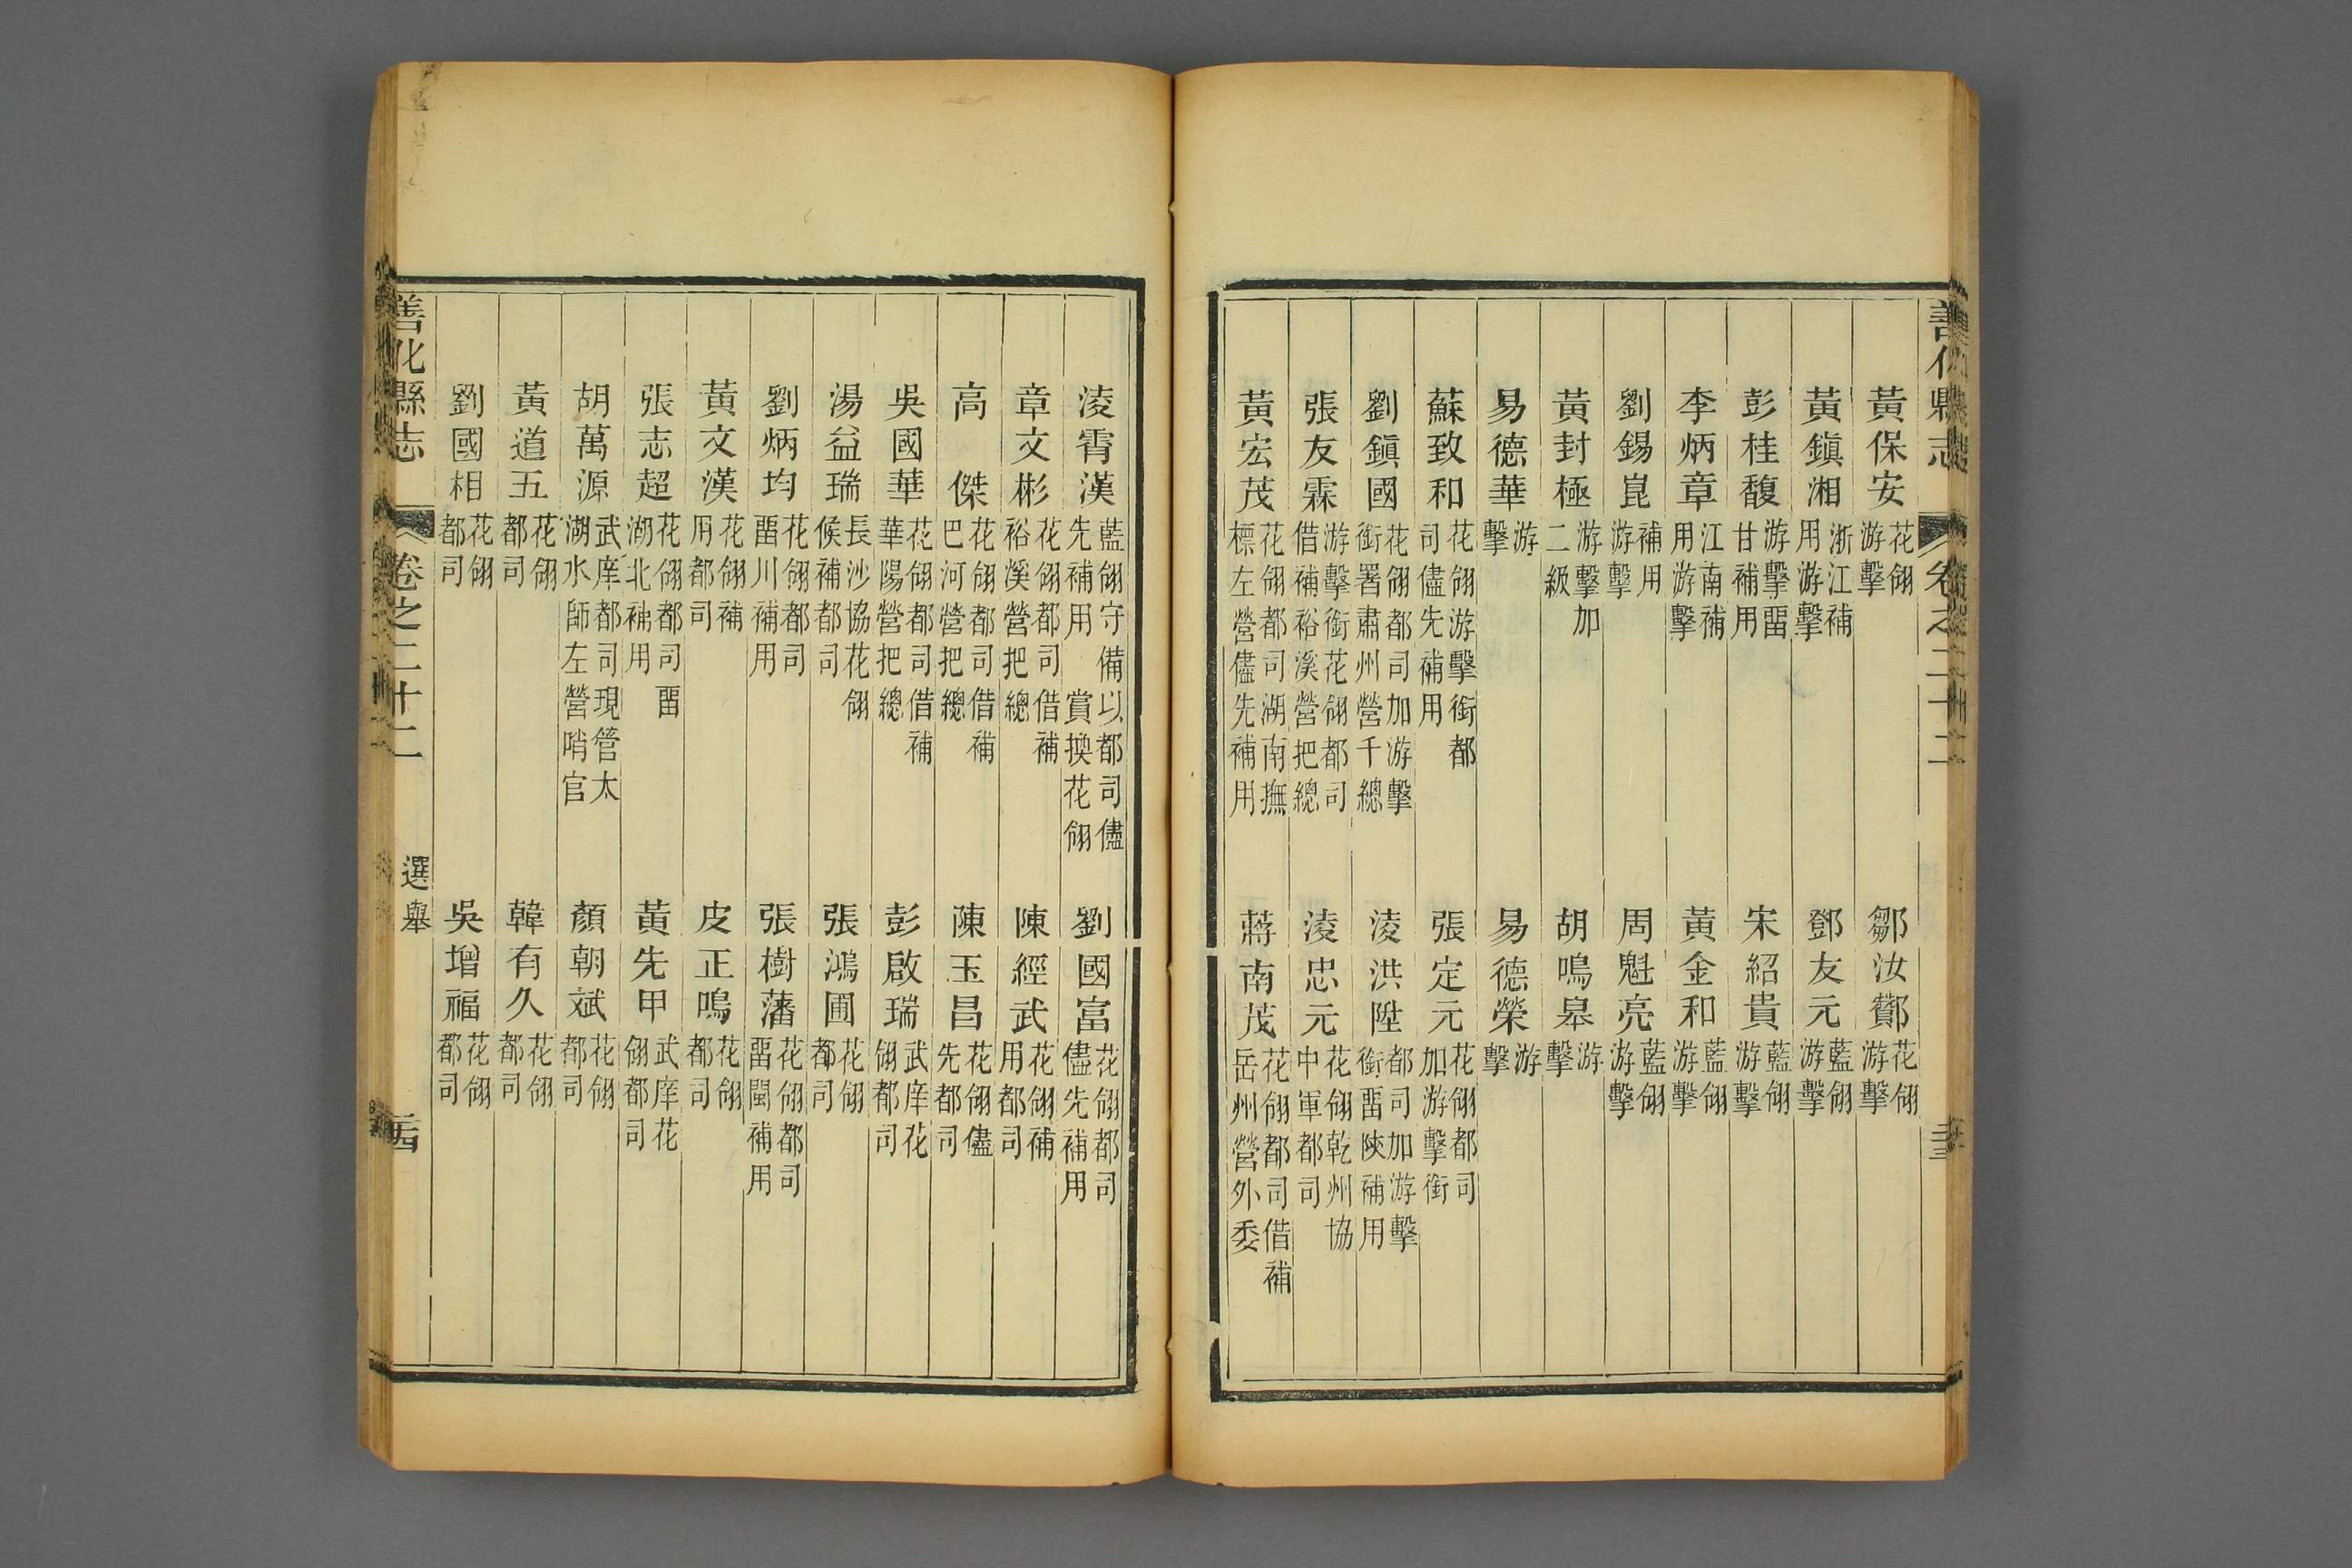 善化縣志 卷之二十二
黃保安 花翎游擊 鄒汝酇 花翎游擊
黃鎮湘 浙江補用游擊 鄧友元 藍翎游擊
彭桂馥 游擊畱甘補用 宋紹貴 藍翎游擊
李炳章 江南補用游擊 黃金和 藍翎游擊
劉錫崑 補用游擊 周魁亮 藍翎游擊
黃封極 游擊加二級 胡鳴皋 游擊
易德華 游擊 易德榮 游擊
蘇致和 花翎游擊銜都司儘先補用 張定元 花翎都司加游擊銜
劉鎮國 花翎都司加游擊銜署肅州營千總 淩洪陞 都司加游擊銜畱陝補用
張友霖 游擊銜花翎都司借補裕溪營把總 淩忠元 花翎乾州協中軍都司
黃宏茂 花翎都司湖南撫標左營儘先補用 蔣南茂 花翎都司借補岳州營外委
淩霄漢 藍翎守備以都司儘先補用 賞換花翎 劉國富 花翎都司儘先補用
章文彬 花翎都司借補裕溪營把總 陳經武 花翎補用都司
高傑 花翎都司借補巴河營把總 陳玉昌 花翎儘先都司
吳國華 花翎都司借補華陽營把總 彭啟瑞 武庠花翎都司
湯益瑞 長沙協花翎候補都司 張鴻圃 花翎都司
劉炳均 花翎都司畱川補用 張樹藩 花翎都司畱閩補用
黃文漢 花翎補用都司 皮正鳴 花翎都司
張志超 花翎都司畱湖北補用 黃先甲 武庠花翎都司
胡萬源 武庠都司現管太湖水師左營哨官 顏朝斌 花翎都司
黃道五 花翎都司 韓有久 花翎都司
劉國相 花翎都司 吳增福 花翎都司
善化縣志 卷之二十二 選舉